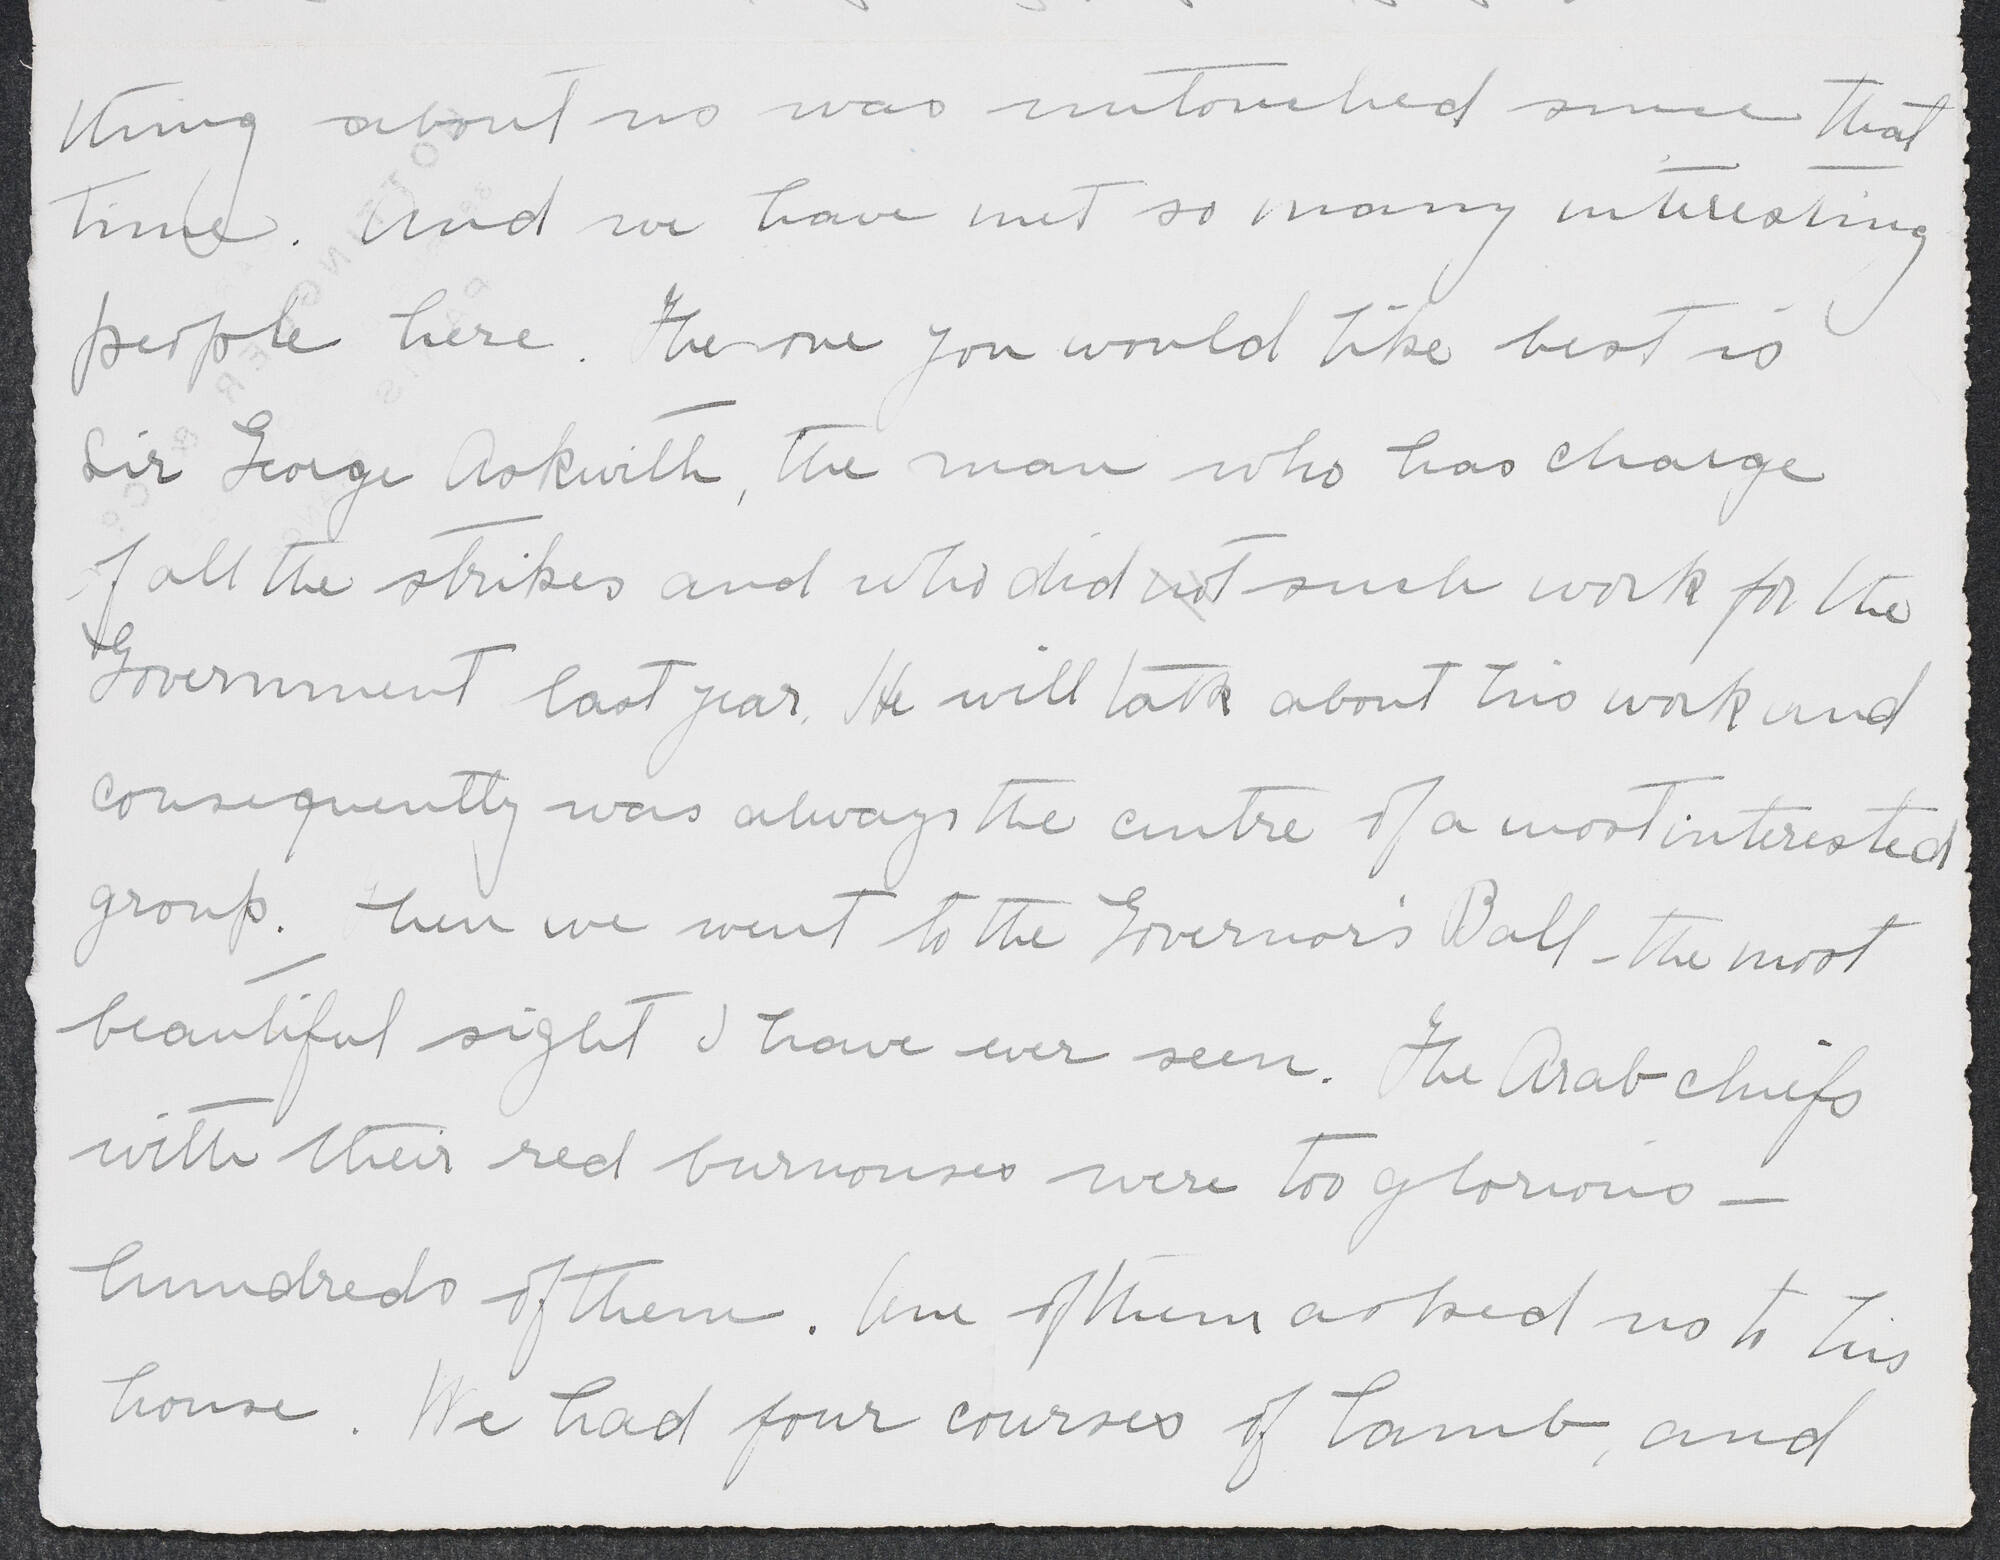 thing about us was untouched since that
time. And we have met so many interesting
people here. The one you would like best is
Sir George Askwith, the man who has charge
of all the strikes and who did not such work for the
Government last year. He will talk about his work and
consequently was always the centre of a most interested
group. Then we went to the Governor's Ball - the most
beautiful sight I have ever seen. The Arab chiefs
with their red burnouses were too glorious -
hundreds of them. One of them asked us to his
house. We had four courses of lamb, and